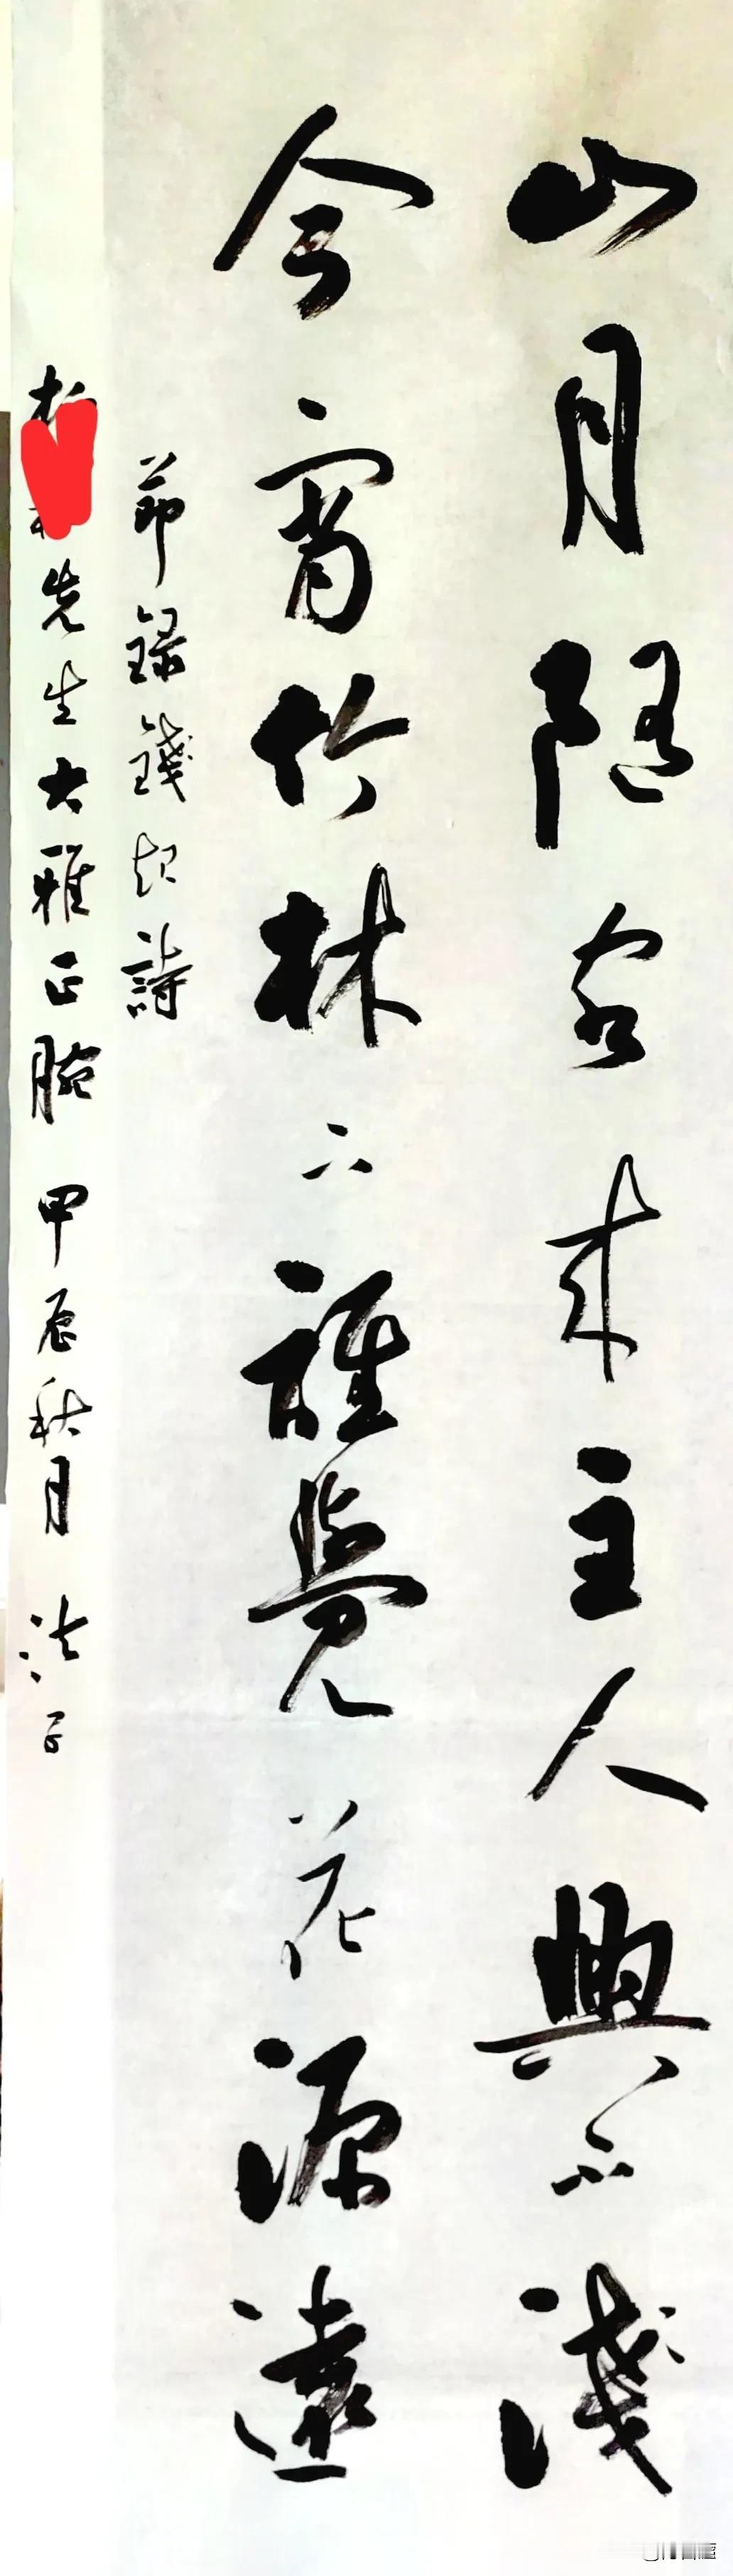 山月隨客來主人興不淺
今宵竹林下誰覺花源遠
節録錢起詩
先生大雅正腕 甲辰秋月 法子